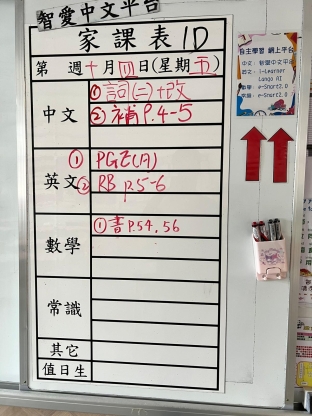 智愛中文平台
家課表 1D
第 週十月四日(星期五)
中文
①詞(二)+改
②補P.4-5
英文
① PGE(A)
② RB p.5-6
數學
①書P.54,56
常識
其它
值日生
自主學習 網上平台
中文: 智愛中文平台
英文: i-Learner
Lango AI
數學: e-Smart2.0
常識: e-Smart2.0